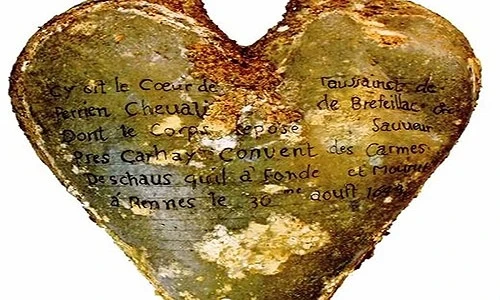 Cy Git le Cœur de Taussainct de
Perrien Chevali de Brefeillac
Dont le Corps repose Sauveur
Pres Carhay Convent des Carmes
Deschaus quil à Fonde et Mourut
á Rennes le 30 me aoust